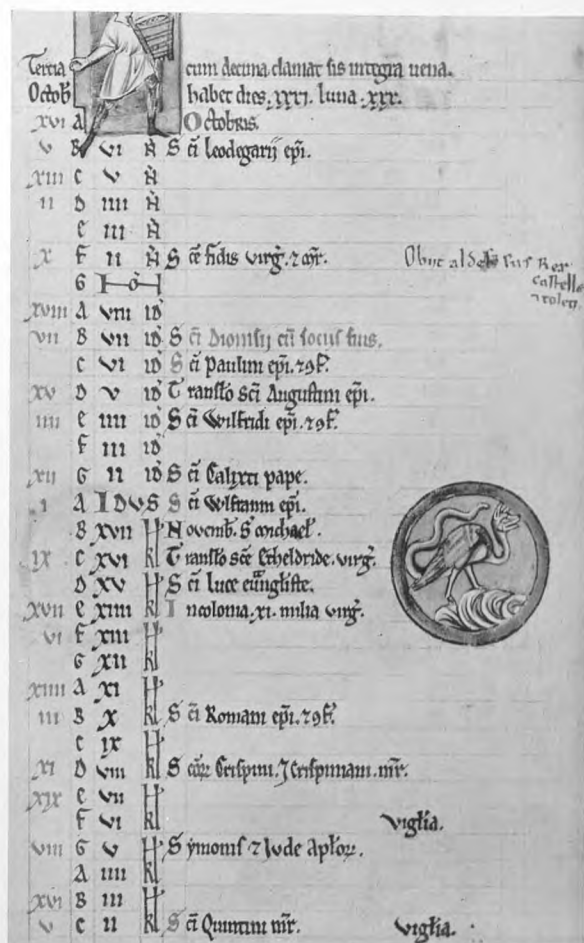 Tercia cum decima clamat sis integra uena.
Octob habet dies .xxxi. luna .xxx.
xvi A Octobris.
v B vi N Sci Leodegarij epi.
xiii C v N
ii D iiii N
E iii N
x F ii N Sce fidis virg. 7 mr. Obijt aldefusus Rex
G No castelle
7 toleti.
xviii A viii id
vii B vii id Sci Dionisij cu sociis suis.
C vi id Sci Paulini epi. 7 9f.
xv D v id Transl'o Sci Augustini epi.
iiii E iiii id Sci Wilfridi epi. 7 9f.
F iii id
xii G ii id Sci Calixti pape.
i A IDVS Sci Wlfranni epi.
B xvii kl Novemb. S michael'.
ix C xvi kl Transl'o Sce Etheldride. virg.
D xv kl Sci Luce eungliste.
xvii E xiiii kl In colonia .xi. milia virg.
vi F xiii kl
G xii kl
xiiii A xi kl
iii B x kl Sci Romani epi. 7 9f.
C ix kl
xi D viii kl Scor Crispini. 7 Crispiniani. mr.
xix E vii kl
F vi kl viglia.
viii G v kl Symonis 7 Iude aplor.
A iiii kl
xvi B iii kl
v C ii kl Sci Quintini mr. viglia.